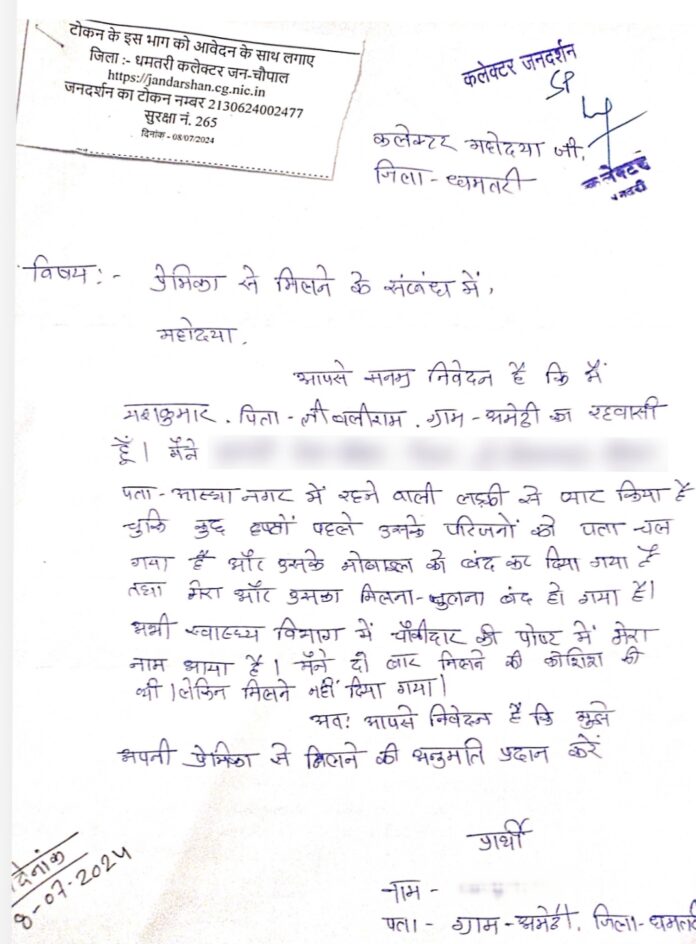 टोकन के इस भाग को आवेदन के साथ लगाए
जिला :- धमतरी कलेक्टर जन-चौपाल
https://jandarshan.cg.nic.in
जनदर्शन का टोकन नम्बर 2130624002477
सुरक्षा नं. 265
दिनांक - 08/07/2024
कलेक्टर जनदर्शन
SP
कलेक्टर महोदया जी,
जिला - धमतरी
कलेक्टर
धमतरी
विषय :- प्रेमिका से मिलने के संबंध में,
महोदया,
आपसे सनम्र निवेदन है कि मैं
पिता - श्री बलीराम, ग्राम - अमेठी का रहवासी
हूँ। मैंने
पता - आस्था नगर में रहने वाली लड़की से प्यार किया है
चुकि कुछ हफ्तों पहले उसके परिजनों को पता चल
गया है और उसके मोबाइल को बंद कर दिया गया है
तथा मेरा और उसका मिलना-जुलना बंद हो गया है।
अभी स्वास्थ्य विभाग में चौकीदार की पोस्ट में मेरा
नाम आया है। मैंने दो बार मिलने की कोशिश की
थी। लेकिन मिलने नहीं दिया गया।
अतः आपसे निवेदन है कि मुझे
अपनी प्रेमिका से मिलने की अनुमति प्रदान करें
प्रार्थी
नाम -
पता - ग्राम - अमेठी, जिला - धमतरी
दिनांक
8-07-2024